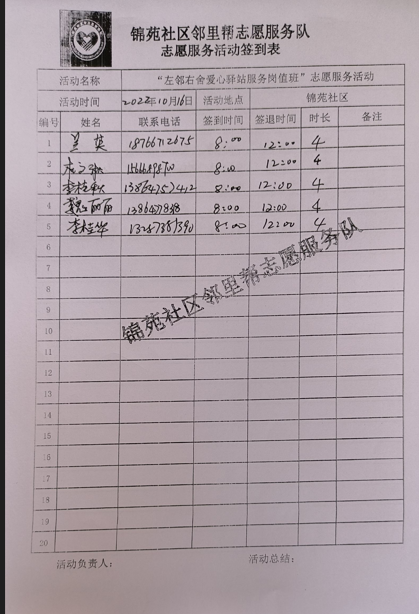 锦苑社区邻里帮志愿服务队
志愿服务活动签到表
活动名称 “左邻右舍爱心驿站服务岗值班”志愿服务活动
活动时间 2022年10月16日 活动地点 锦苑社区
编号 姓名 联系电话 签到时间 签退时间 时长 备注
1 兰英 18766712675 8:00 12:00 4
2 8:00 12:00 4
3 李桂 13864252412 8:00 12:00 4
4 魏丽丽 8:00 12:00 4
5 李桂华 13287381390 8:00 12:00 4
6
7
8
9
锦苑社区邻里帮志愿服务队
10
11
12
13
14
15
16
17
18
19
20
活动负责人: 活动总结: